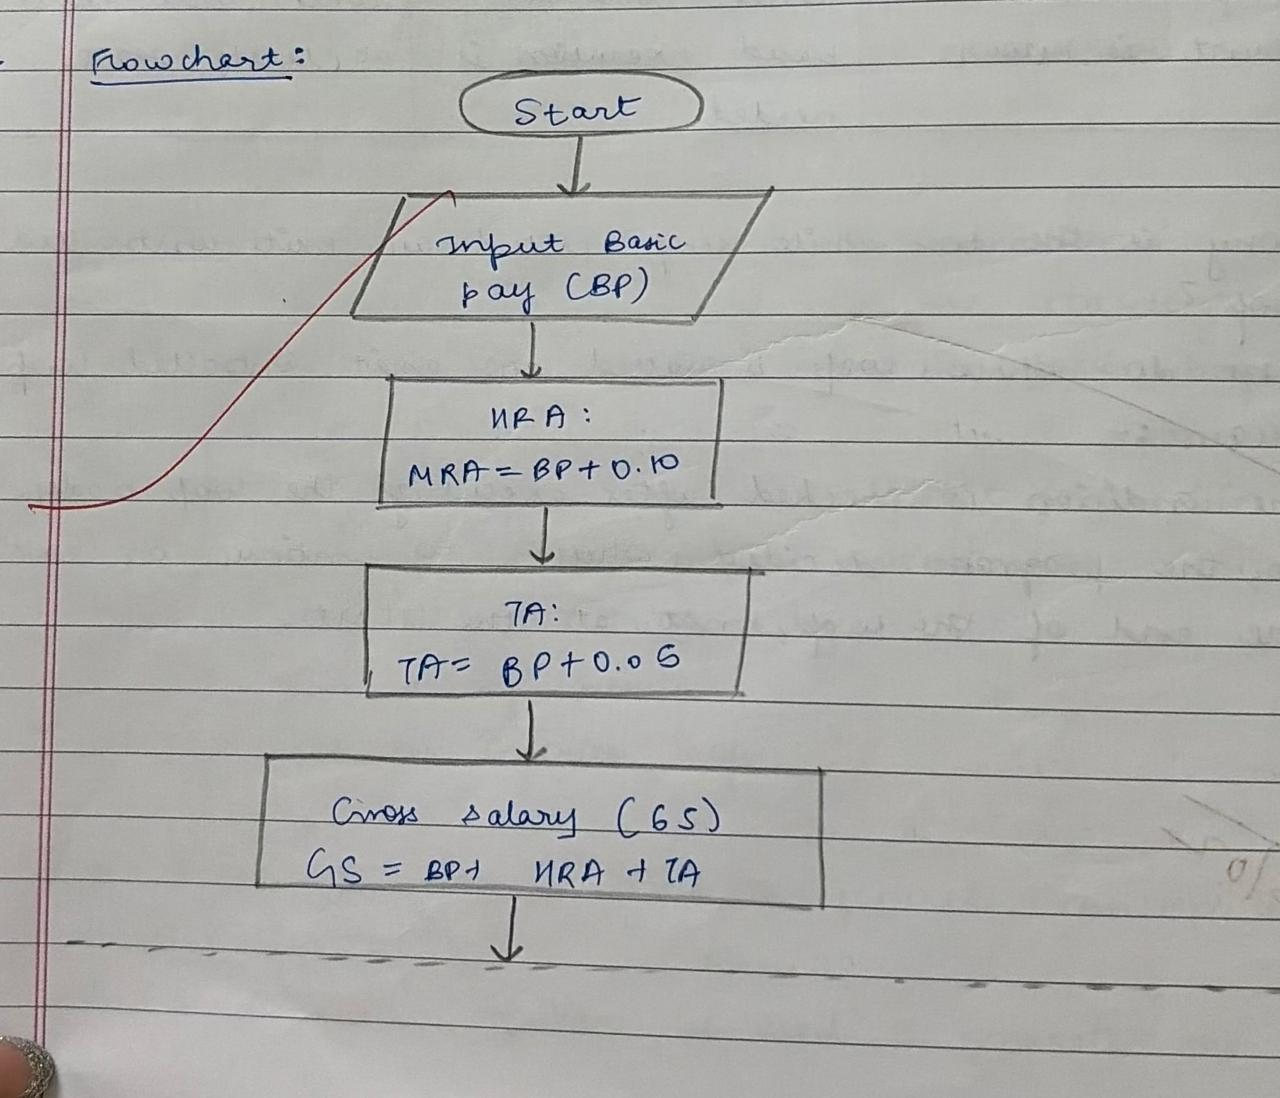 Flowchart:
Start
Input Basic
pay (BP)
HRA:
HRA = BP + 0.10
TA:
TA = BP + 0.05
Gross salary (GS)
GS = BP + HRA + TA